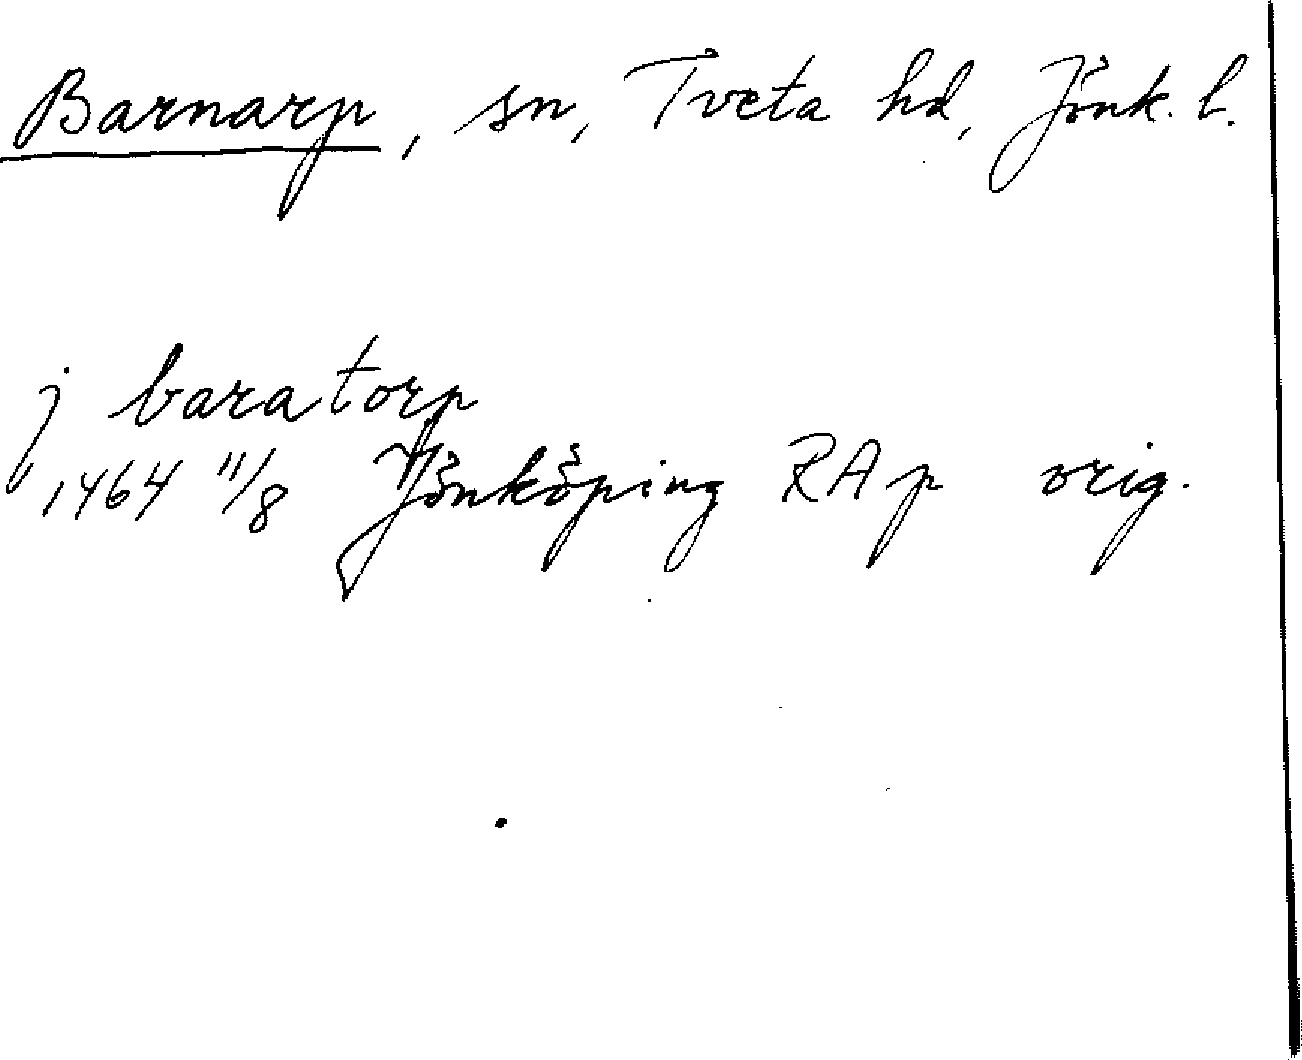 Barnarp, sn, Tveta hd, Jönk. l.
j baratorp
1464 11/8 Jönköping RAp orig.